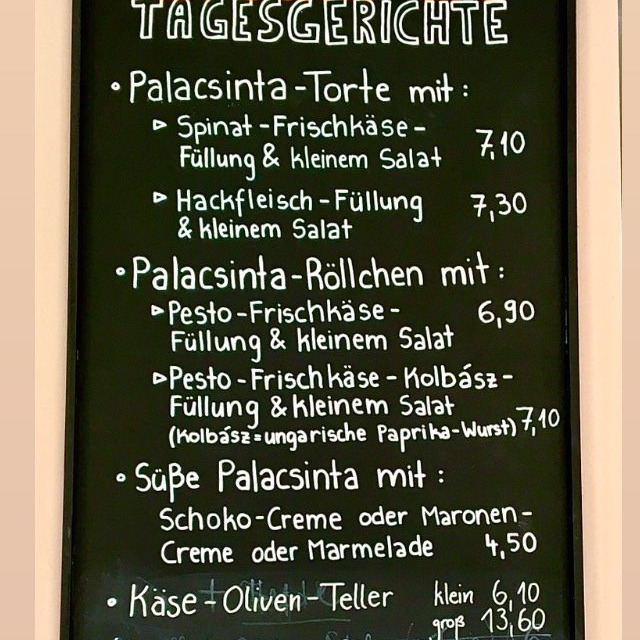 TAGESGERICHTE
• Palacsinta-Torte mit:
▷ Spinat-Frischkäse-
Füllung & kleinem Salat 7,10
▷ Hackfleisch-Füllung 7,30
& kleinem Salat
• Palacsinta-Röllchen mit:
▷ Pesto-Frischkäse- 6,90
Füllung & kleinem Salat
▷ Pesto-Frischkäse-Kolbász-
Füllung & kleinem Salat
(Kolbász=ungarische Paprika-Wurst) 7,10
• Süße Palacsinta mit:
Schoko-Creme oder Maronen-
Creme oder Marmelade 4,50
• Käse-Oliven-Teller klein 6,10
groß 13,60